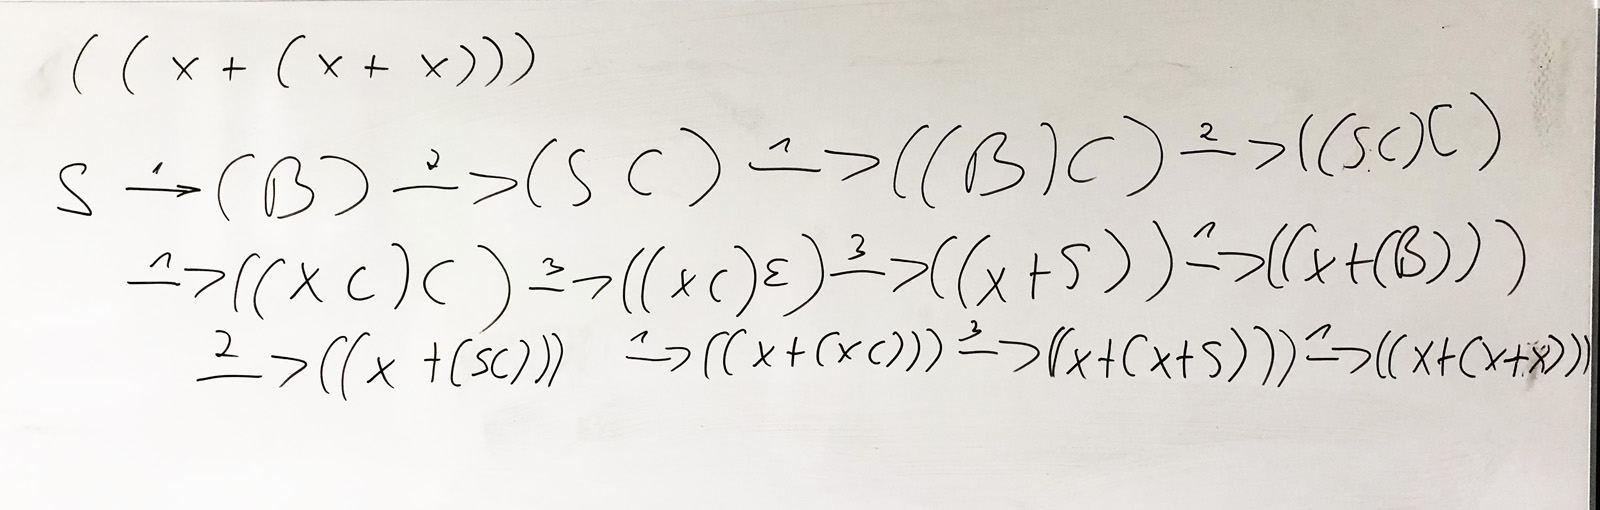 ((x + (x + x)))
S -1-> (B) -2-> (S C) -1-> ((B)C) -2-> ((SC)C)
-1-> ((x C)C) -3-> ((xC)ε) -3-> ((x+S)) -1-> ((x+(B)))
-2-> ((x +(SC))) -1-> ((x+(xC))) -3-> ((x+(x+S))) -1-> ((x+(x+x)))